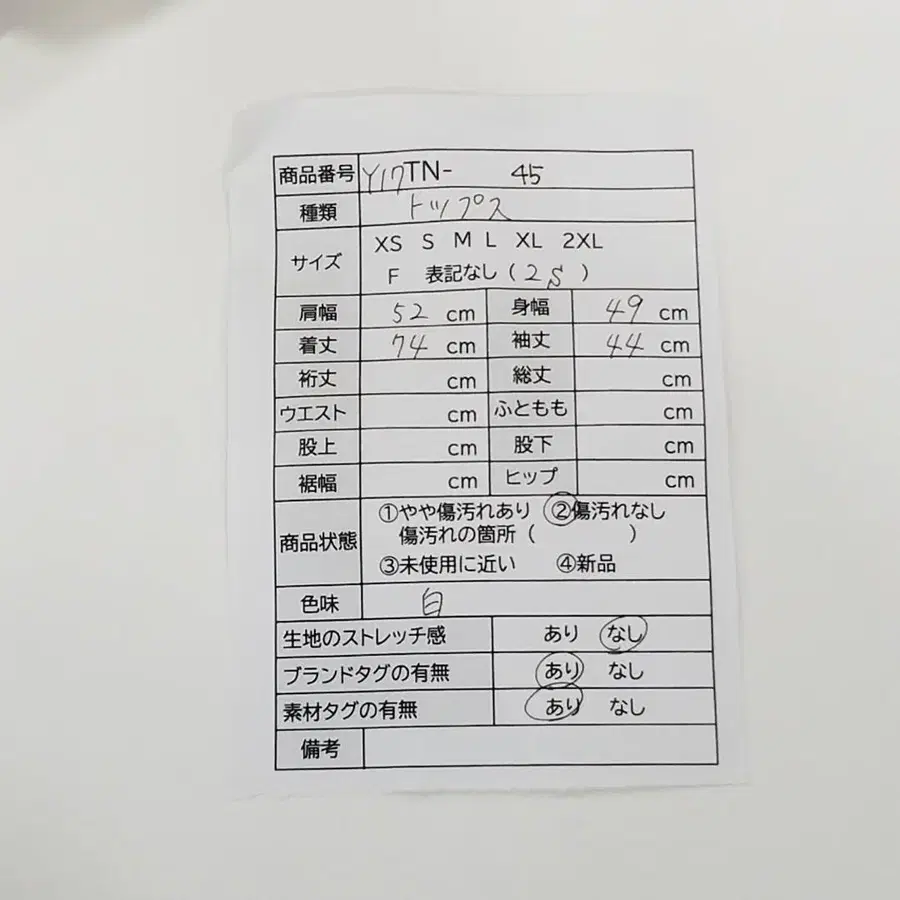 商品番号 Y17TN- 45
種類 トップス
サイズ XS S M L XL 2XL
F 表記なし ( 2S )
肩幅 52 cm 身幅 49 cm
着丈 74 cm 袖丈 44 cm
裄丈 cm 総丈 cm
ウエスト cm ふともも cm
股上 cm 股下 cm
裾幅 cm ヒップ cm
商品状態 ①やや傷汚れあり ②傷汚れなし
傷汚れの箇所 ( )
③未使用に近い ④新品
色味 白
生地のストレッチ感 あり なし
ブランドタグの有無 あり なし
素材タグの有無 あり なし
備考